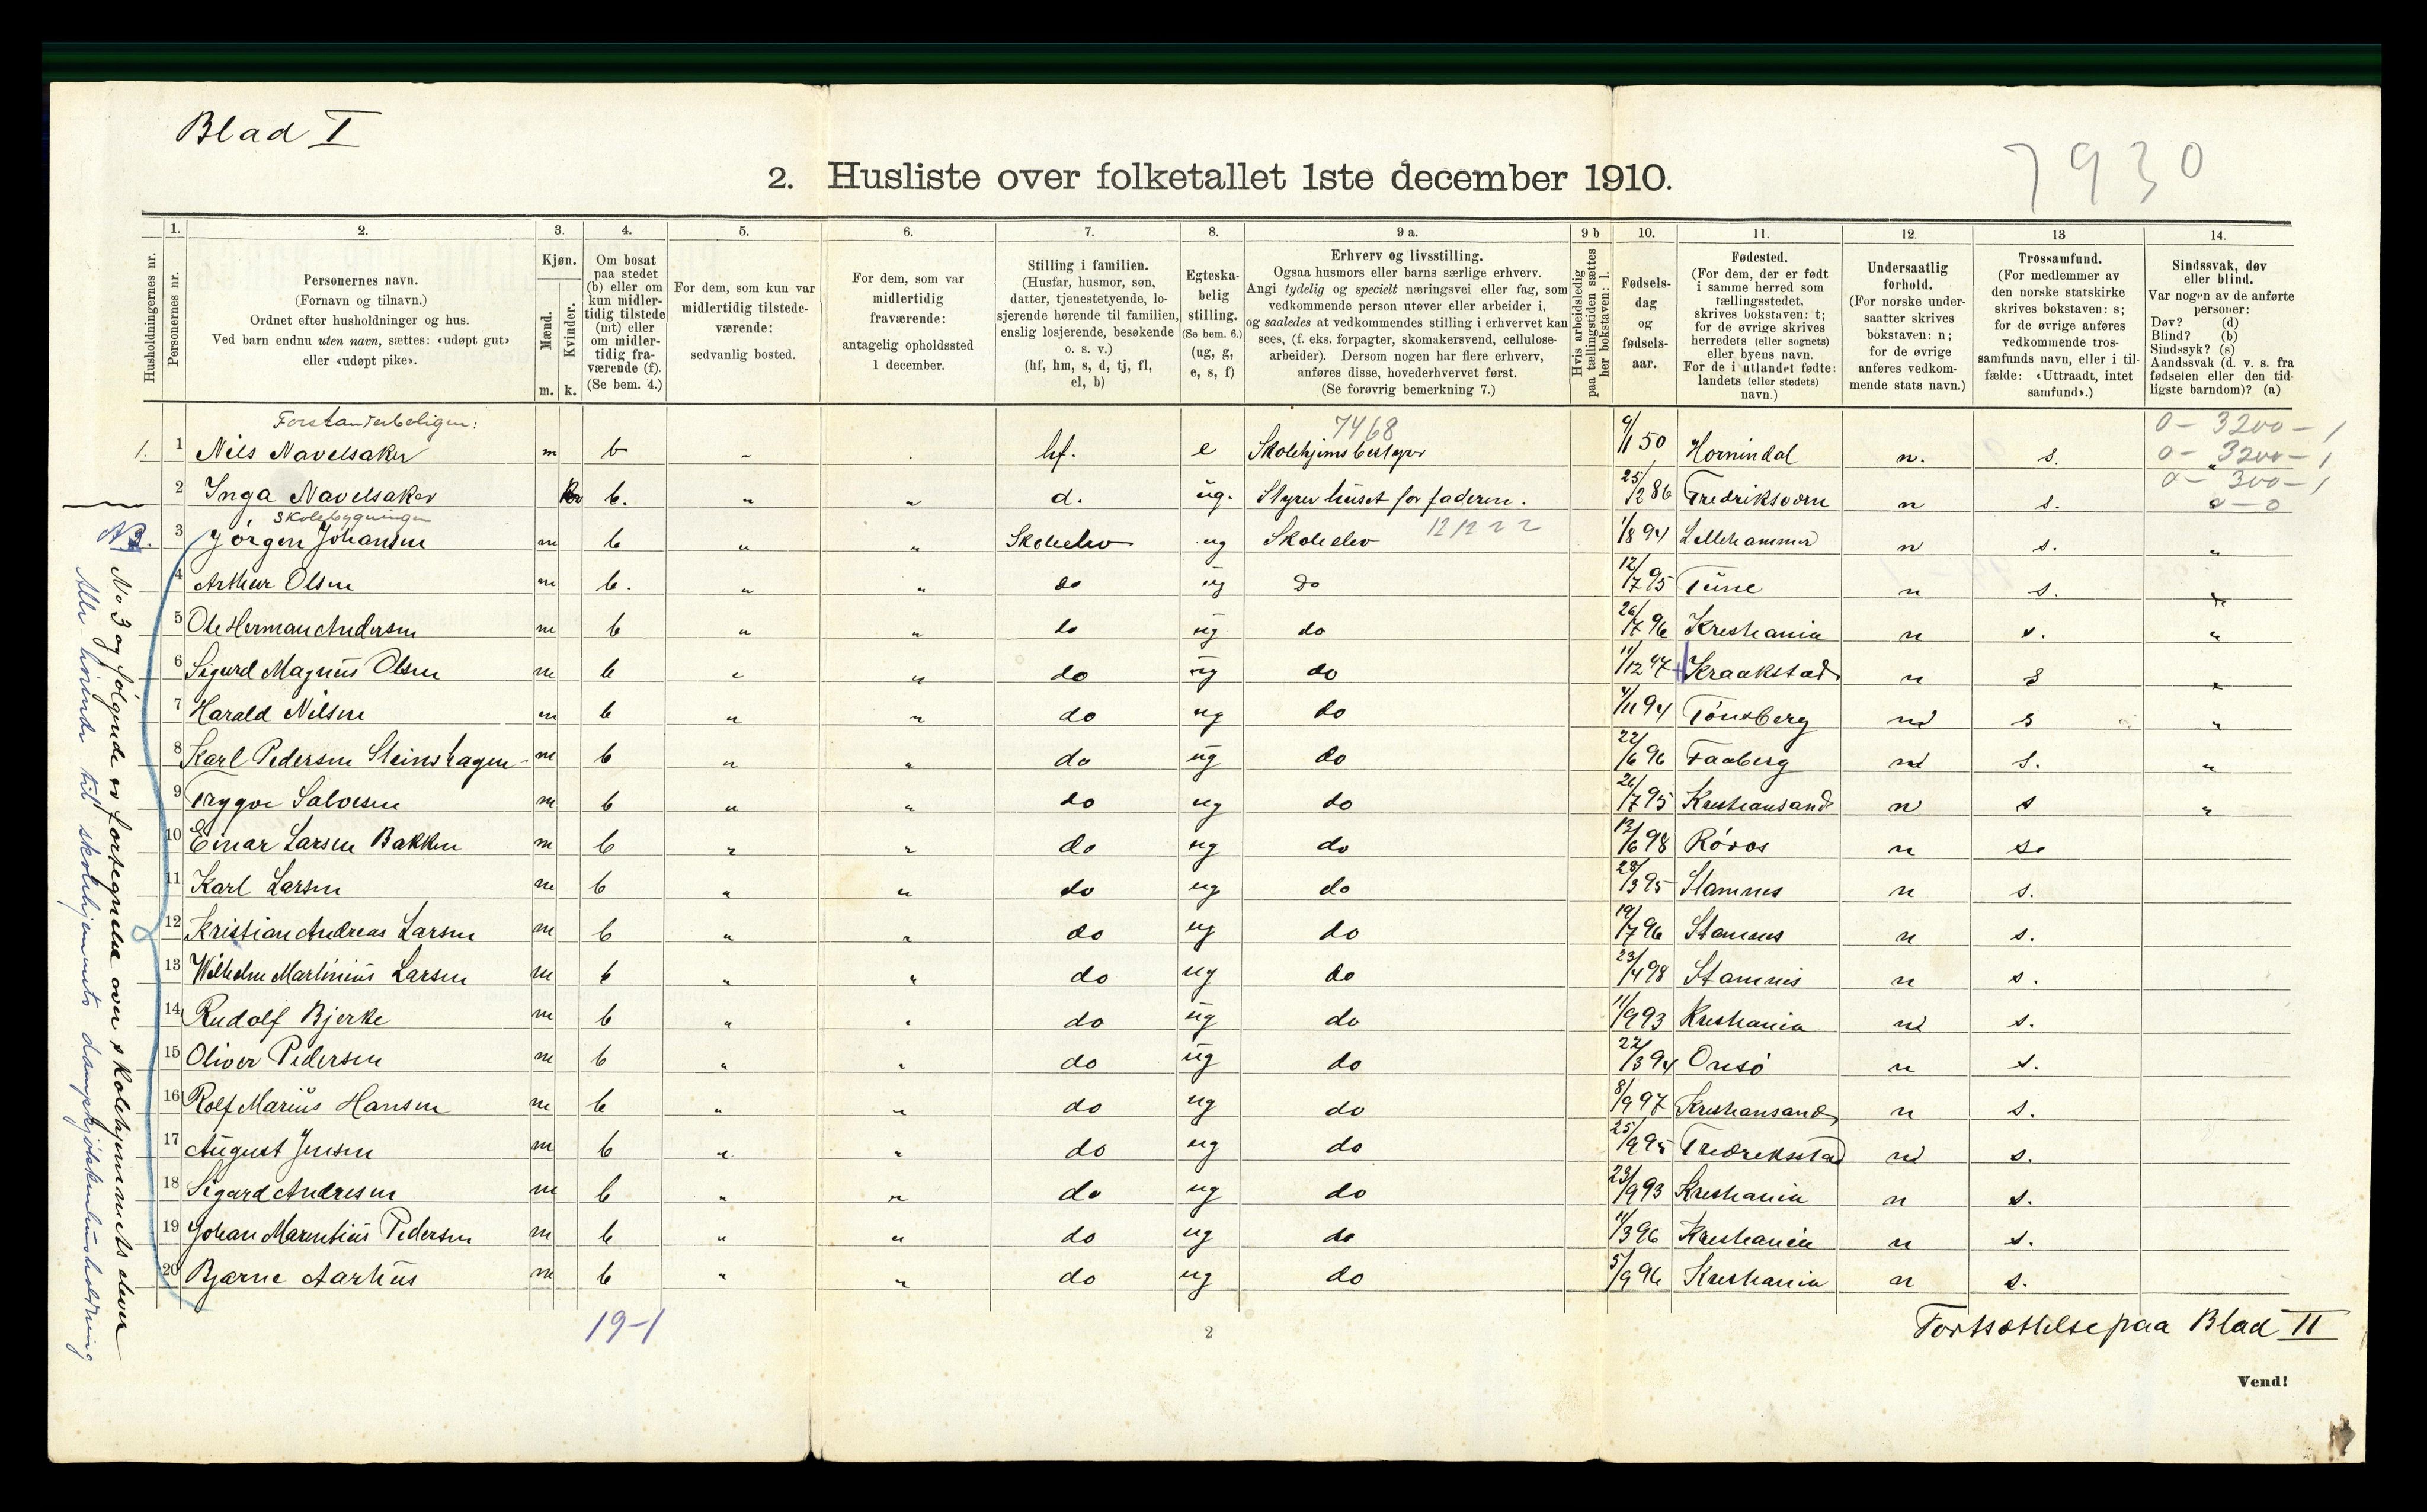 Blad I
7930
2. Husliste over folketallet 1ste december 1910.
Husholdningernes nr.
1. Personernes nr.
2. Personernes navn. (Fornavn og tilnavn.) Ordnet efter husholdninger og hus. Ved barn endnu uten navn, sættes: «udøpt gut» eller «udøpt pike».
3. Kjøn. Mænd. m. Kvinder. k.
4. Om bosat paa stedet (b) eller om kun midlertidig tilstede (mt) eller om midlertidig fraværende (f). (Se bem. 4.)
5. For dem, som kun var midlertidig tilstedeværende: sedvanlig bosted.
6. For dem, som var midlertidig fraværende: antagelig opholdssted 1 december.
7. Stilling i familien. (Husfar, husmor, søn, datter, tjenestetyende, losjerende hørende til familien, enslig losjerende, besøkende o. s. v.) (hf, hm, s, d, tj, fl, el, b)
8. Egteskabelig stilling. (Se bem. 6.) (ug, g, e, s, f)
9 a. Erhverv og livsstilling. Ogsaa husmors eller barns særlige erhverv. Angi tydelig og specielt næringsvei eller fag, som vedkommende person utøver eller arbeider i, og saaledes at vedkommendes stilling i erhvervet kan sees, (f. eks. forpagter, skomakersvend, cellulosearbeider). Dersom nogen har flere erhverv, anføres disse, hovederhvervet først. (Se forøvrig bemerkning 7.)
9 b Hvis arbeidsledig paa tællingstiden sættes her bokstaven: l.
10. Fødselsdag og fødselsaar.
11. Fødested. (For dem, der er født i samme herred som tællingsstedet, skrives bokstaven: t; for de øvrige skrives herredets (eller sognets) eller byens navn. For de i utlandet fødte: landets (eller stedets) navn.)
12. Undersaatlig forhold. (For norske undersaatter skrives bokstaven: n; for de øvrige anføres vedkommende stats navn.)
13 Trossamfund. (For medlemmer av den norske statskirke skrives bokstaven: s; for de øvrige anføres vedkommende trossamfunds navn, eller i tilfælde: «Uttraadt, intet samfund».)
14. Sindssvak, døv eller blind. Var nogen av de anførte personer: Døv? (d) Blind? (b) Sindssyk? (s) Aandssvak (d. v. s. fra fødselen eller den tidligste barndom)? (a)
Forstanderboligen: 7468 0 - 3200 - 1
1. 1 Nils Navelsaker m b " hf. e Skolehjemsbestyrer 9/11 50 Hornindal n. s. 0 - 3200 - 1
0 - 300 - 1
2 Inga Navelsaker k b. " " d. ug. Styrer huset for faderen. 25/2 86 Fredriksværn n s. 0 - 0
Skolebygningen 12 12 2 2
3 Jörgen Johansen m b " " Skoleelev ug Skoleelev 1/8 94 Lillehammer n s. "
4 Arthur Olsen m b. " " do ug Do 12/7 95 Tune n s. "
5 Ole Herman Andersen m b " " do ug do 26/7 96 Kristiania n s. "
6 Sigurd Magnus Olsen m b " " do ug do 11/12 97 Kraakstad n s "
7 Harald Nilsen m b " " do ug do 4/11 94 Tönsberg n s "
8 Karl Pedersen Steinshagen m b " " do ug do 22/6 96 Faaberg n s. "
9 Trygve Salvesen m b " " do ug do 26/7 95 Kristiansand n s "
10 Einar Larsen Bakken m b " " do ug do 13/6 98 Röros n s.
11 Karl Larsen m b " " do ug do 28/3 95 Stamnes n s.
12 Kristian Andreas Larsen m b " " do ug do 19/7 96 Stamnes n s.
13 Wilhelm Martinius Larsen m b " " do ug do 23/4 98 Stamnes n s.
14 Rudolf Bjerke m b " " do ug do 11/9 93 Kristiania n s.
15 Oliver Pedersen m b " " do ug do 22/3 94 Onsö n s.
16 Rolf Marius Hansen m b " " do ug do 8/9 97 Kristiansand n s.
17 August Jensen m b " " do ug do 25/9 95 Fredriksstad n s.
18 Sigurd Andresen m b " " do ug do 23/9 93 Kristiania n s.
19 Johan Marentius Pedersen m b " " do ug do 11/3 96 Kristiania n s.
20 Bjarne Aarhus m b " " do ug do 5/9 96 Kristiania n s.
19-1
2
Fortsættelse paa Blad II
Vend!
NB. No 3 og fölgende er fortegnelse over skolehjemmets elever
Alle hörende til skolehjemmets dampkjökkenhusholdning